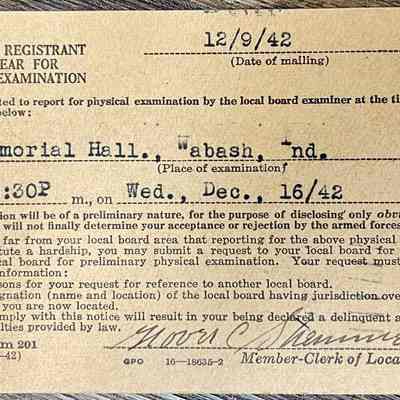 REGISTRANT
EAR FOR
EXAMINATION
12/9/42
(Date of mailing)
ted to report for physical examination by the local board examiner at the ti
below:
morial Hall., Wabash, Ind.
(Place of examination)
:30P m., on Wed., Dec., 16/42
tion will be of a preliminary nature, for the purpose of disclosing only obv
will not finally determine your acceptance or rejection by the armed forces
far from your local board area that reporting for the above physical
tute a hardship, you may submit a request to your local board for
cal board for preliminary physical examination. Your request must
information:
sons for your request for reference to another local board.
gnation (name and location) of the local board having jurisdiction over
you are now located.
mply with this notice will result in your being declared a delinquent a
lties provided by law.
rm 201
-42)
GPO 16—18635-2
Member-Clerk of Loca